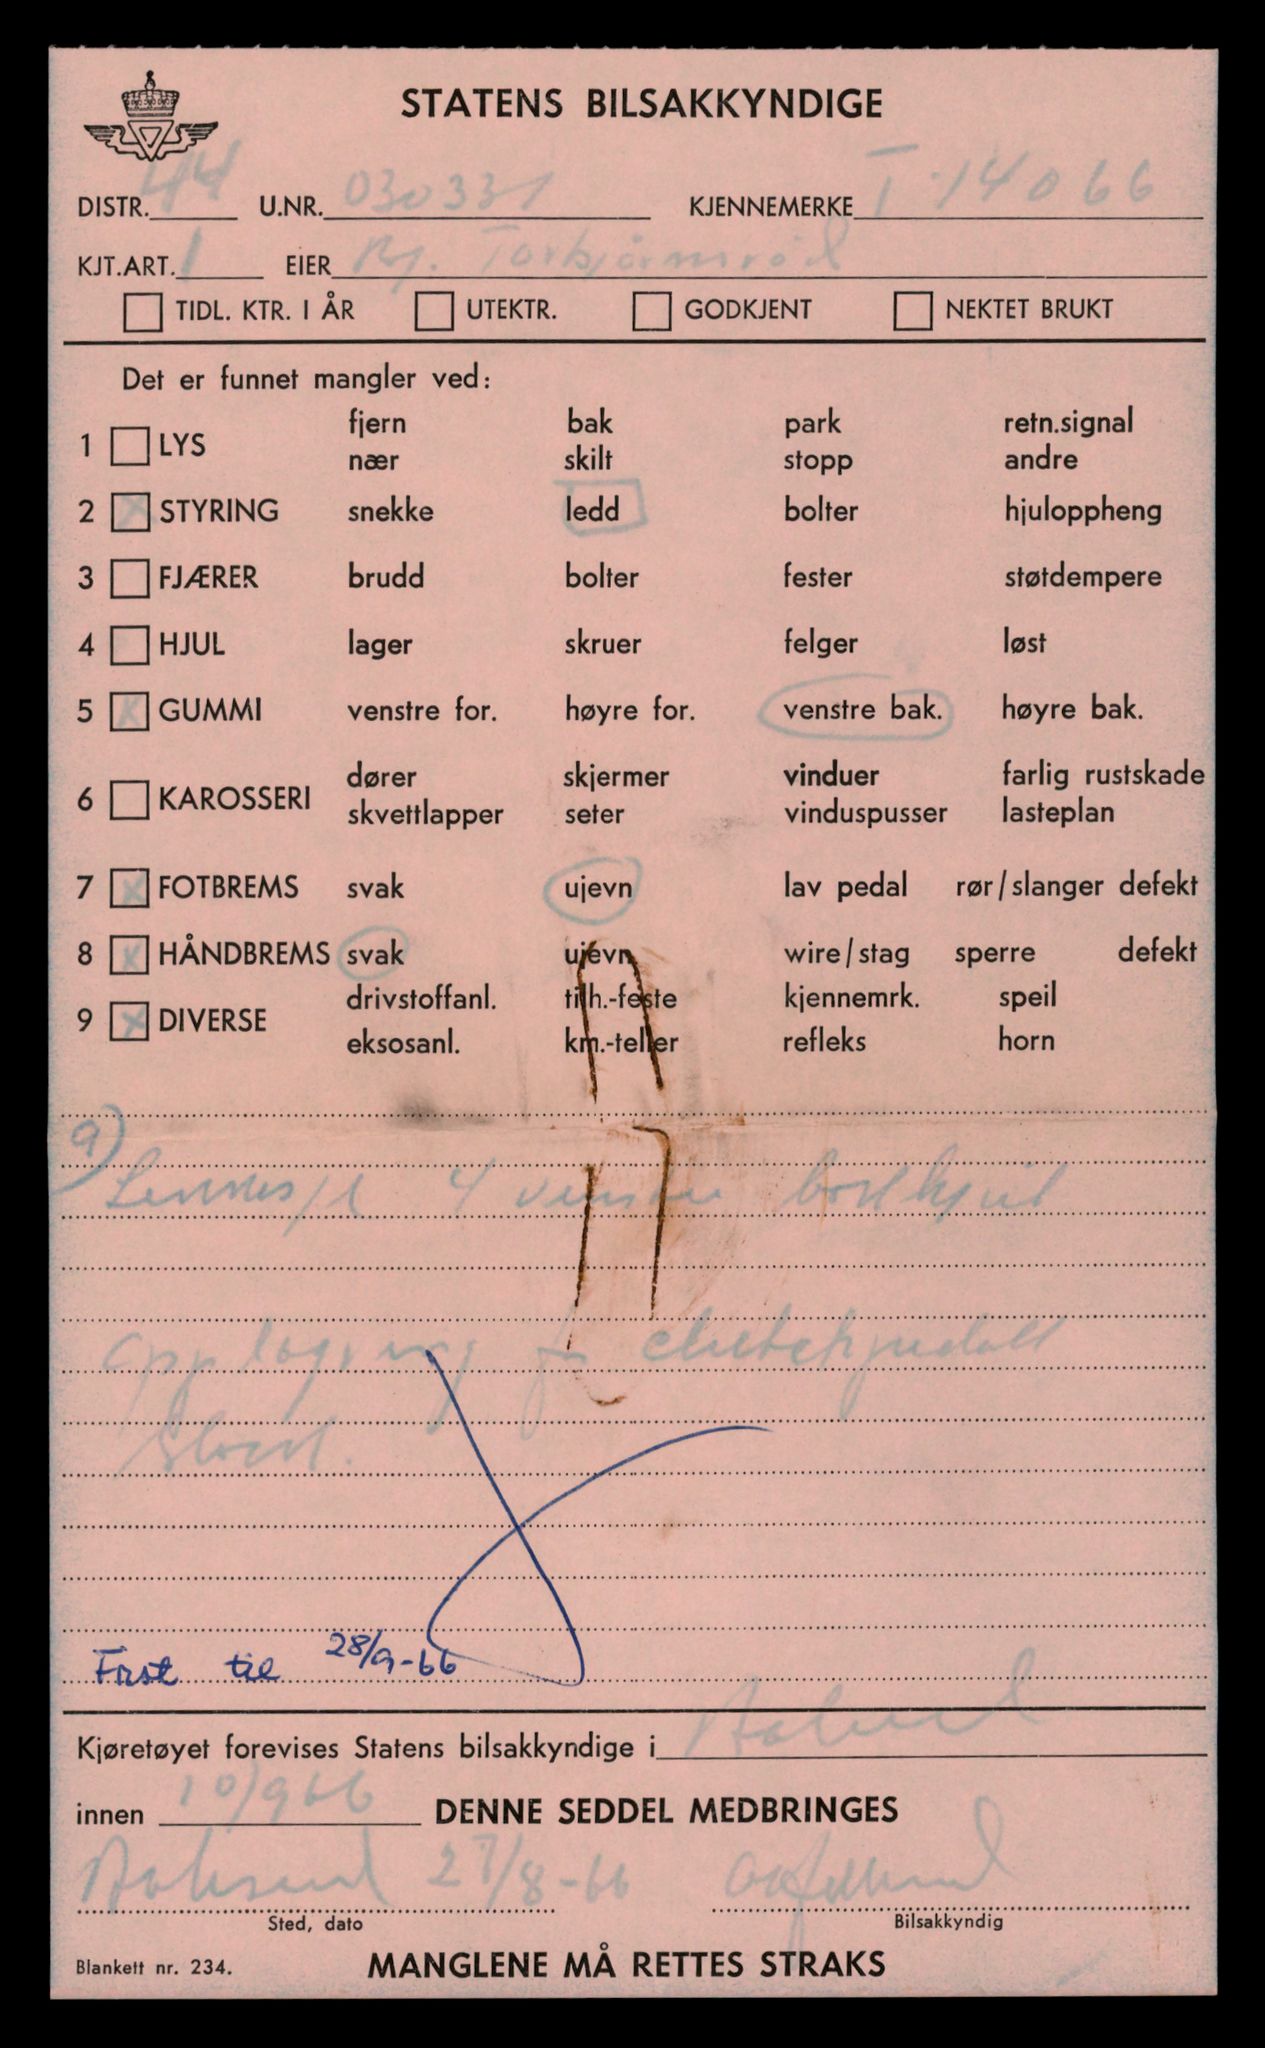 STATENS BILSAKKYNDIGE
DISTR. 44 U.NR. 030331 KJENNEMERKE T-14066
KJT.ART. 1 EIER Torbjørnsrød
TIDL. KTR. I ÅR UTEKTR. GODKJENT NEKTET BRUKT
Det er funnet mangler ved:
fjern bak park retn.signal
1 LYS
nær skilt stopp andre
2 X STYRING snekke ledd bolter hjuloppheng
3 FJÆRER brudd bolter fester støtdempere
4 HJUL lager skruer felger løst
5 X GUMMI venstre for. høyre for. venstre bak. høyre bak.
dører skjermer vinduer farlig rustskade
6 KAROSSERI
skvettlapper seter vinduspusser lasteplan
7 X FOTBREMS svak ujevn lav pedal rør/slanger defekt
8 X HÅNDBREMS svak ujevn wire/stag sperre defekt
drivstoffanl. tilh.-feste kjennemrk. speil
9 X DIVERSE
eksosanl. km.-teller refleks horn
9)
4 venstre
Opplagring
Frist til 28/9-66
Kjøretøyet forevises Statens bilsakkyndige i
innen 10/9 66 DENNE SEDDEL MEDBRINGES
27/8-66
Sted, dato Bilsakkyndig
Blankett nr. 234. MANGLENE MÅ RETTES STRAKS